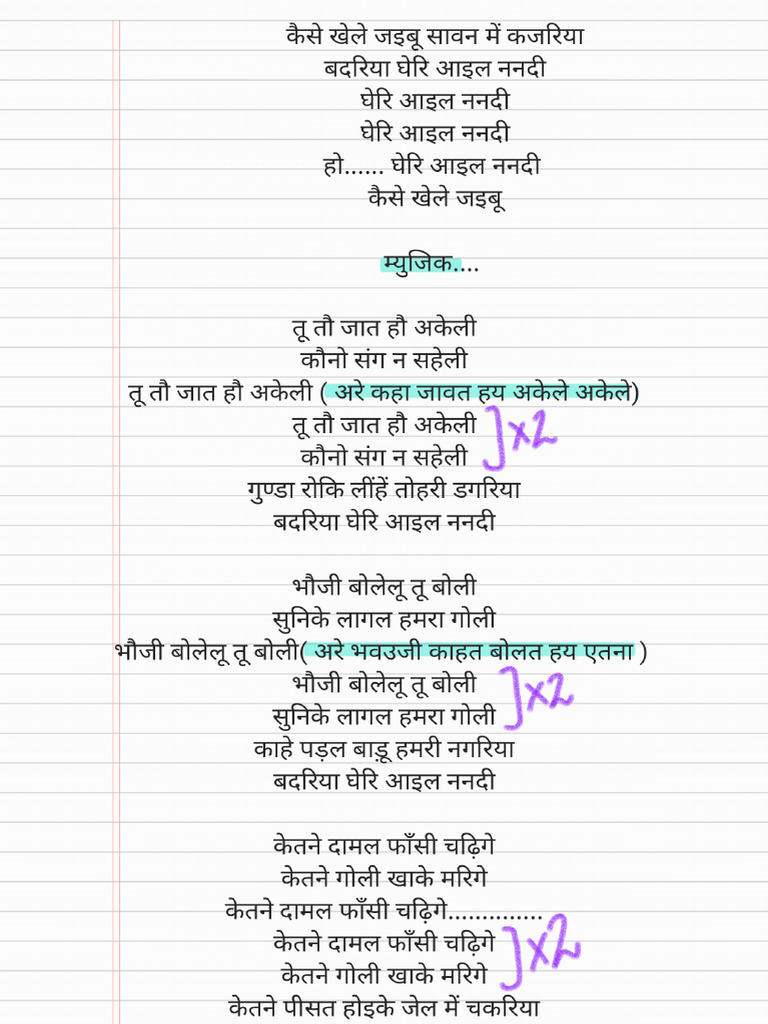 कैसे खेले जइबू सावन में कजरिया
बदरिया घेरि आइल ननदी
घेरि आइल ननदी
घेरि आइल ननदी
हो...... घेरि आइल ननदी
कैसे खेले जइबू
म्युजिक....
तू तौ जात हौ अकेली
कौनो संग न सहेली
तू तौ जात हौ अकेली ( अरे कहा जावत हय अकेले अकेले)
तू तौ जात हौ अकेली
कौनो संग न सहेली ]x2
गुण्डा रोकि लींहें तोहरी डगरिया
बदरिया घेरि आइल ननदी
भौजी बोलेलू तू बोली
सुनिके लागल हमरा गोली
भौजी बोलेलू तू बोली( अरे भवउजी काहत बोलत हय एतना )
भौजी बोलेलू तू बोली
सुनिके लागल हमरा गोली ]x2
काहे पड़ल बाड़ू हमरी नगरिया
बदरिया घेरि आइल ननदी
केतने दामल फाँसी चढ़िगे
केतने गोली खाके मरिगे
केतने दामल फाँसी चढ़िगे..............
केतने दामल फाँसी चढ़िगे
केतने गोली खाके मरिगे ]x2
केतने पीसत होइके जेल में चकरिया